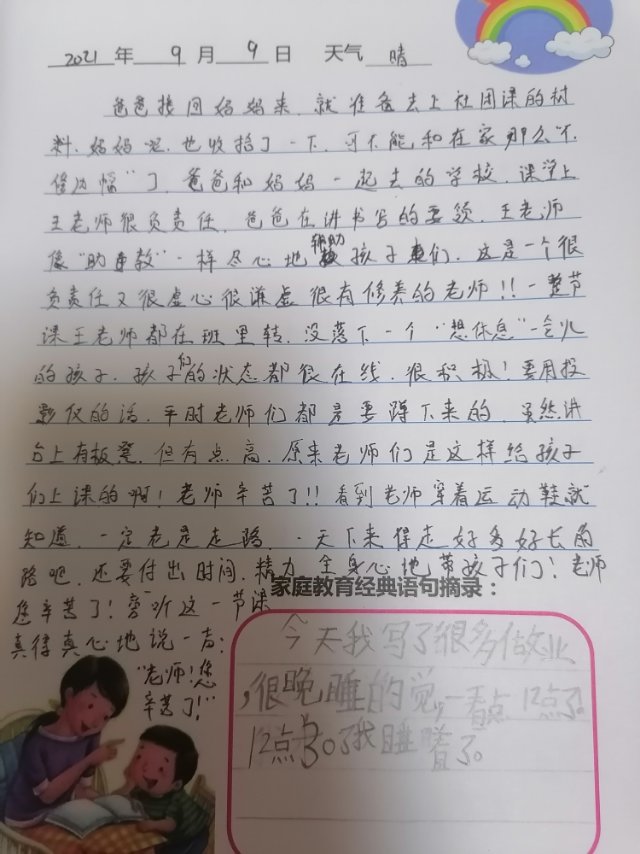 2021 年 9 月 9 日 天气 晴
爸爸接回妈妈来,就准备去上社团课的材
料.妈妈呢.也收拾了一下.可不能和在家那么"不
修边幅"了.爸爸和妈妈一起去的学校.课堂上
王老师很负责任.爸爸在讲书写的要领.王老师
像"助教"一样尽心地辅助孩子们.这是一个很
负责任又很虚心很谦虚很有修养的老师!!一整节
课王老师都在班里转.没落下一个"想休息"一会儿
的孩子.孩子们的状态都很在线.很积极!要用投
影仪的话.平时老师们都是要蹲下来的.虽然讲
台上有板凳.但有点高.原来老师们是这样给孩子
们上课的啊!老师辛苦了!!看到老师穿着运动鞋就
知道.一定老是走路.一天下来得走好多好长的
路吧.还要付出时间.精力.全身心地带孩子们!老师
您辛苦了!旁听这一节课
真得真心地说一声:
"老师!您
辛苦了!"
家庭教育经典语句摘录:
今天我写了很多作业
,很晚睡的觉,一看点12点了。
12点30了我睡着了。